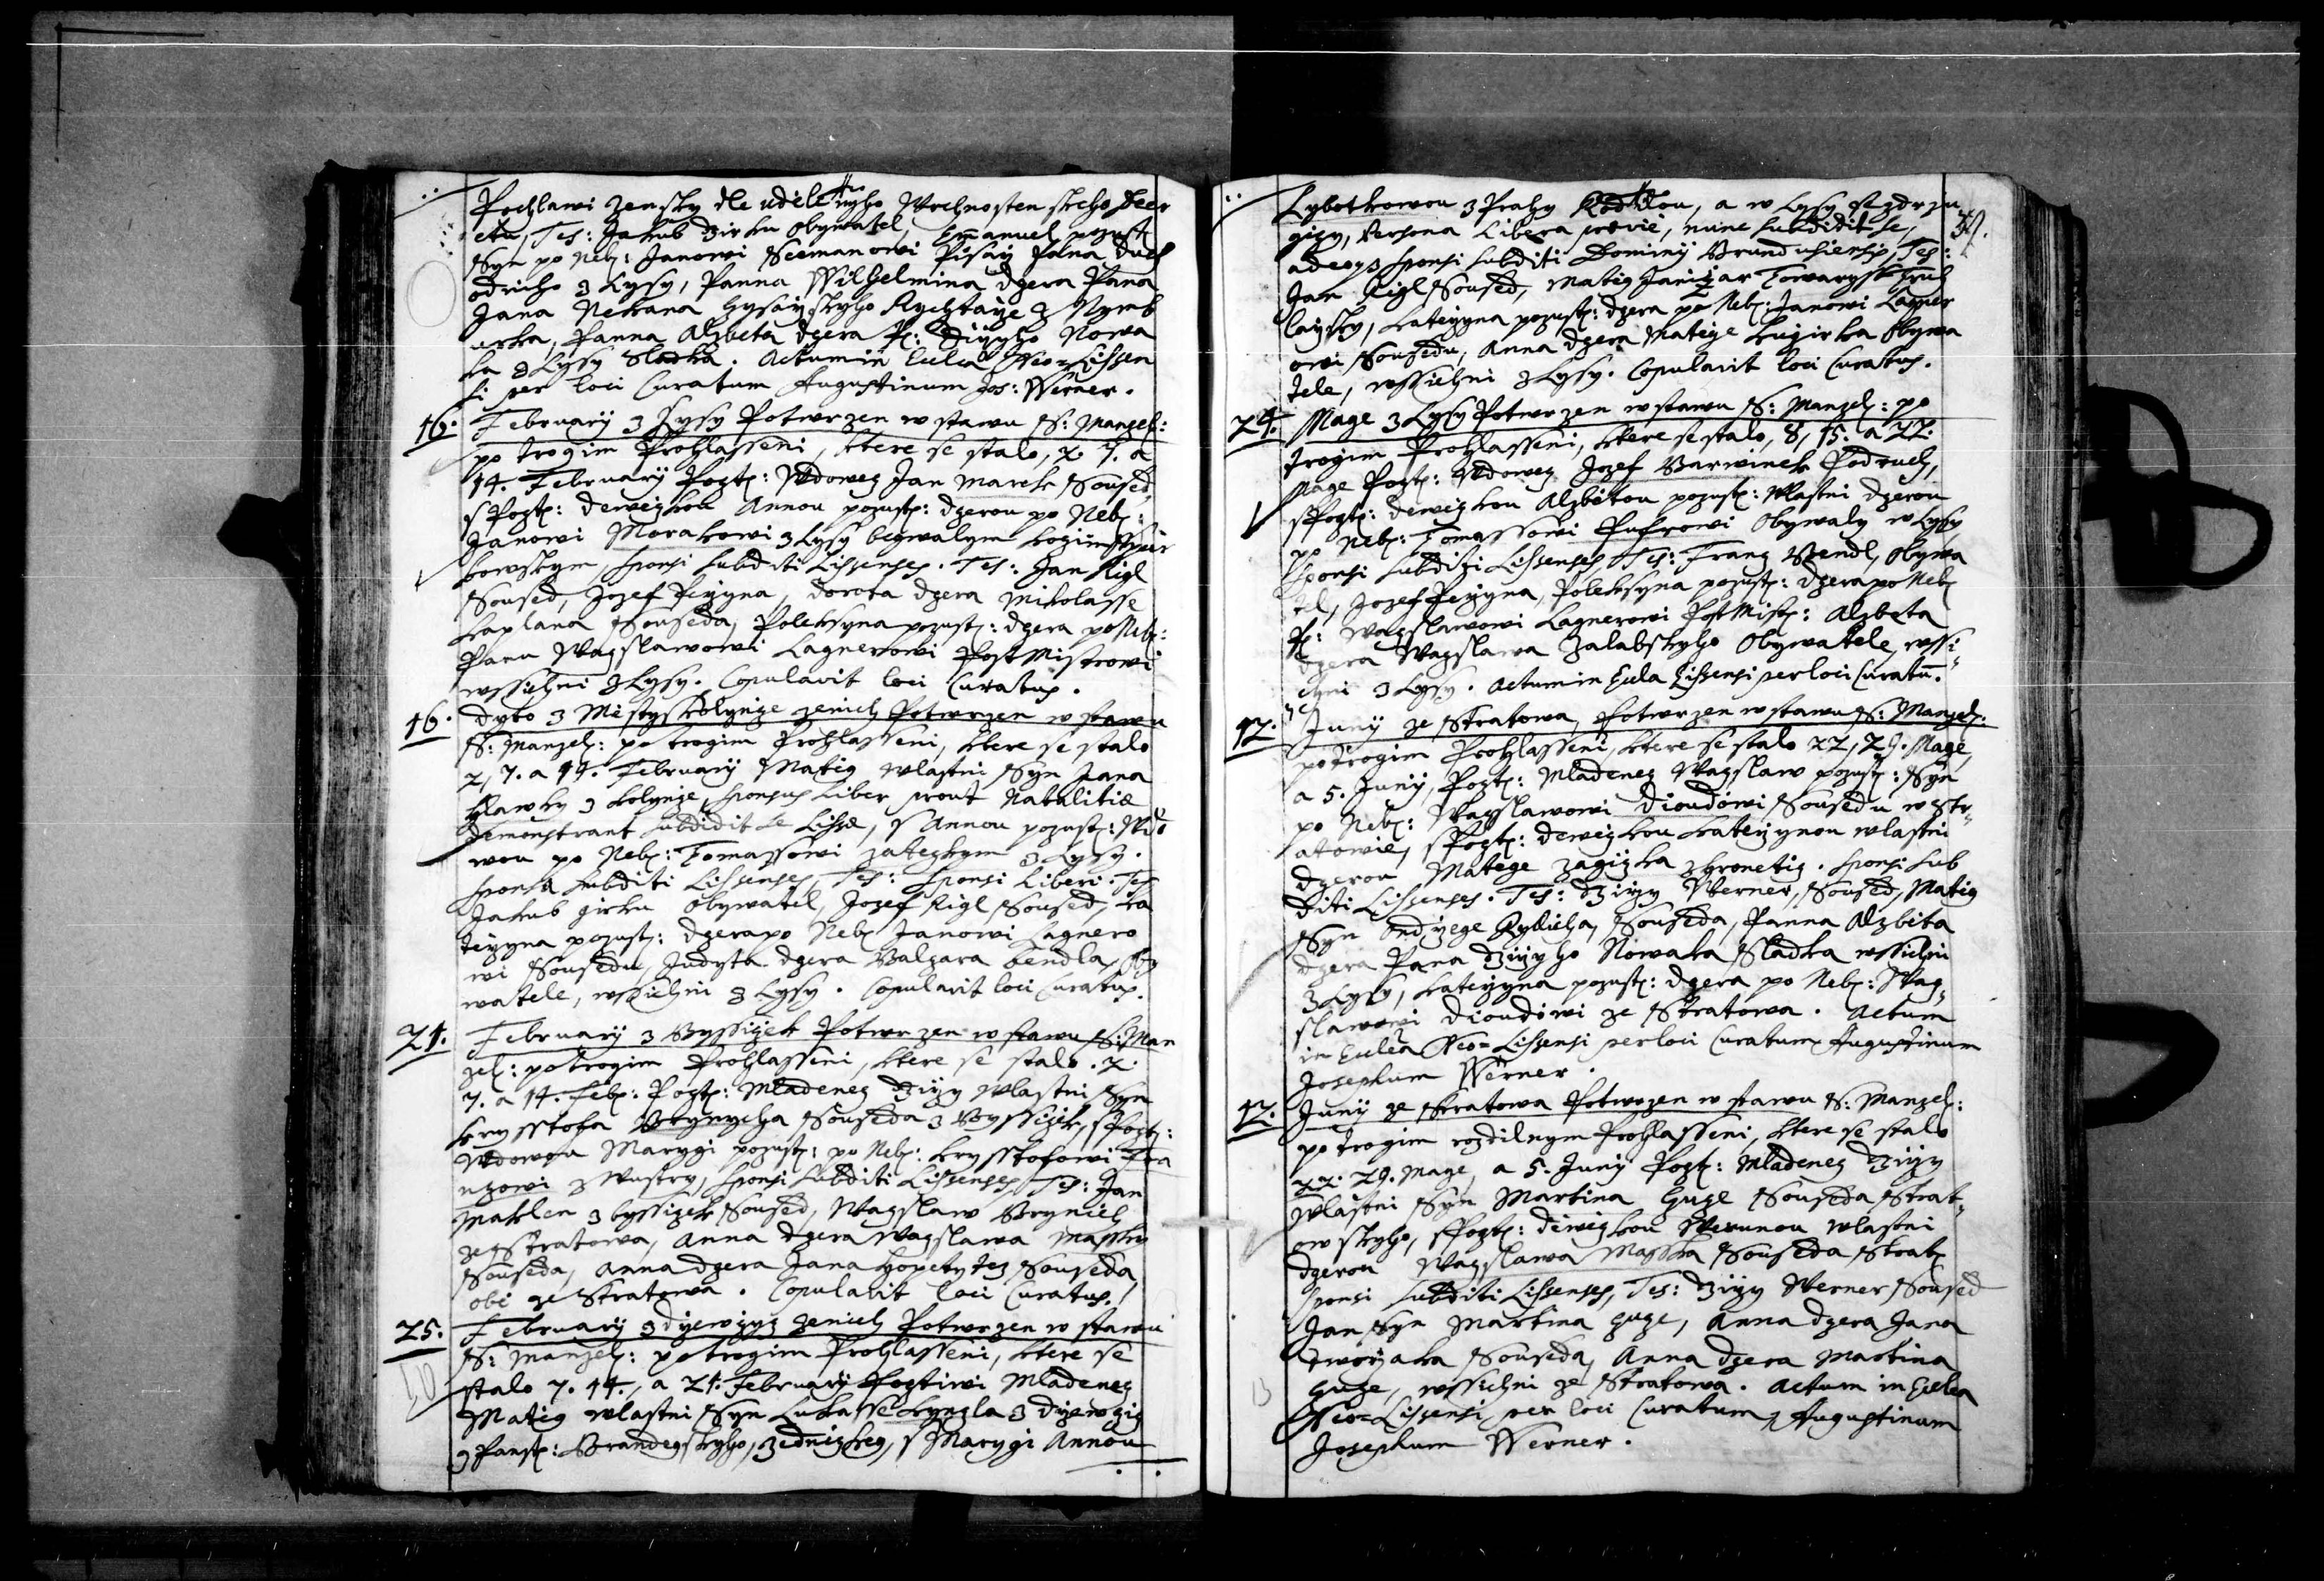 Pohlawi zensky dle udileneho Wrchnostenskeho Decr
etu, Tes: Jakub Zirku Obywatel, Emanuel pozust:
Syn po Neb: Janowi Seemanowi Pisarz Pana Duch
odniho z Lysy, Panna Wilhelmina Dcera Pana
Jana Nekana Cysarzskyho Rychtarze z Nymb
urka, Panna Alzbeta Dcera P: Girzyho Nowa
ka z Lysy Sladka. Actum in Eccla Neo-Lissen
si per loci Curatum Augustinum Jos: Werner.
16. February z Lysy Potwrzen w stawu S: Manzel:
po trogim Prohlasseni, ktere se stalo, 2. 7. a
14. February Pozt: Wdowez Jan Marek Soused,
s Pozt: dewezkou Annou pozust: Dcerou po Neb:
Janowi Morakowi z Lysy beywalym
bowskym, sponsi subditi Lissenses. Tes: Jan Rigl
Soused, Jozef Perzyna, Dorota Dcera Mikolasse
Kaplana Souseda, Poleksyna pozust: Dcera po Neb:
Panu Waczlawowi Lagnerowi Post Mistrowi
wssichni z Lysy. Copulavit loci Curatus.
16. Dyto z Mestys Kolynze zenich Potwrzen w stawu
S: Manzel: po trogim Prohlasseni, ktere se stalo
2, 7. a 14. February Matieg wlastni Syn Jana
Hlawky z Kolynze, sponsus liber prout Natalitiae
demonstrant subdidit se Lissae, s Annou pozust: Wdo
wou po Neb: Tomassowi Zateckym z Lysy.
sponsa subditi Lissenses, Tes: sponsi liberi. Tes
Jakub Jirku Obywatel, Jozef Rigl Soused, Ka
terzyna pozust: Dcera po Neb Janowi Lagnero
wi Sousedu, Judyta Dcera Balzara Bendla, Oby
watele, wssichni z Lysy. Copulavit loci Curatus.
21. February z Byssiczek Potwrzen w stawu S: Man
zel: po trogim Prohlasseni, ktere se stalo. 2.
7. a 14. Feb: Pozt: Mladenez Girzy Wlastni Syn
Krysstofa Brynycha Souseda z Byssiczek, s Pozt:
Wdowou Marygi pozust: po Neb: Krysstofowi Fra
nzowi z Wustry, sponsi subditi Lissenses, Tes: Jan
Mahlen z Byssiczek Soused, Waczlaw Brynich
ze Stratowa, Anna Dcera Waczlawa Massku
Souseda, Anna Dcera Jana Kopety tez Souseda,
obe ze Stratowa. Copulavit loci Curatus.
25. February z Drzewczycz zenich Potwrzen w stawu
S: Manzel: po trogim Prohlasseni, ktere se
stalo 7. 14., a 21. February Poctiwi Mladenez
Matieg wlastni Syn Lukasse Kynzla z Drzewczicz
z Panst: Brandegskyho, Zednizkeg, s Marygi Annou
Lybotkowou z Prahy Rodilou, a w Lysy se zdrzu
gicy, Persona Libera , nunc subdidit se,
adeoq3 sponsi subditi Dominij Brundusiensis, Tes:
Jan Rigl Soused, Matieg Janizar Towarysse Truh
larzsky, Katerzyna pozust: Dcera po Neb: Janowi Lagner
owi Sousedu, Anna Dcera Matieje Obywa
tele, wssichni z Lysy. Copulavit loci Curatus.
24. Mage z Lysy Potwrzen w stawu S: Manzel: po
trogim Prohlasseni, ktere se stalo, 8, 15. a 22.
Mage Pozt: Wdowez Jozef Barwinek Podruh,
s Pozt: dewezkou Alzbetou pozust: Wlastni Dcerou
po Neb: Tomassowi Obywaly w Lysy
sponsi subditi Lissenses, Tes: Franz Bendl, Obywa
tel, Jozef Perzyna, Poleksyna pozust: Dcera po Neb
P: Waczlawowi Lagnerowi Post Mist: Alzbeta
Dcera Waczlawa Zalabskyho Obywatele, wssi
chni z Lysy. Actum in Eccla Lissensi per loci Curatu.
12. Juny ze Stratowa, Potwrzen w stawu S: Manzel:
po trogim Prohlasseni, ktere se stalo 22, 29. Mage,
a 5. Juny, Pozt: Mladenez Waczlaw pozust: Syn
po Neb: Waczlawowi Dioudowi Sousedu w Str
atowie, s Pozt: dewezkou Katerzynou wlastni
Dcerou Matege Zagiczka z Hronetic. sponsi sub
diti Lissenses. Tes: Girzy Werner, Soused, Matieg
Syn Ondrzege Rydicha, Souseda, Panna Alzbeta
Dcera Pana Girzyho Nowaka Sladka wssichni
z Lysy, Katerzyna pozust: Dcera po Neb: Wacz
slawowi Dioudowi ze Stratowa. Actum
in Eccla Neo-Lissensi per loci Curatum Augustinum
Josephum Werner.
12. Juny ze Stratowa Potwrzen w stawu S: Manzel:
po trogim rozdilnym Prohlasseni, ktere se stalo
22. 29. Mage, a 5. Juny Pozt: Mladenez Girzy
Wlastni Syn Martina Guze Souseda Strat
owskyho, s Pozt: dewezkou Werunou Wlastni
Dcerou Waczlawa Masska Souseda Strat:
sponsi subditi Lissenses, Tes: Girzy Werner Soused
Jan Syn Martina Guze, Anna Dcera Jana
Dworzaka Souseda, Anna Dcera Martina
Guze, wssichni ze Stratowa. Actum in Eccla
Neo-Lissensi per loci Curatum Augustinum
Josephum Werner.